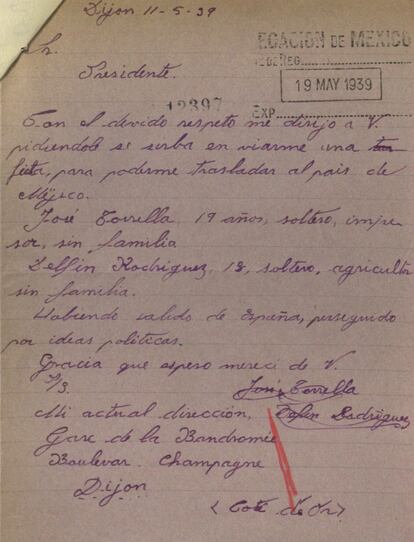 Dijon 11-5-39
Sr.
LEGACION DE MEXICO
Presidente.
DE REG.
19 MAY 1939
12397
EXP.
Con el devido respeto me dirijo a V.
pidiendole se serba en viarme una tar
jeta, para poderme trasladar al pais de
Méjico.
José Torrella, 19 años, soltero, impre
sor, sin familia
Delfin Rodriguez, 18, soltero, agricultor
sin familia.
Habiendo salido de España, perseguido
por ideas politicas.
Gracia que espero mereci de V.
José Torrella
Mi actual dirección, Delfin Rodriguez
Gare de la Bandromie
Boulevar Champagne
Dijon
(Coté de Or)